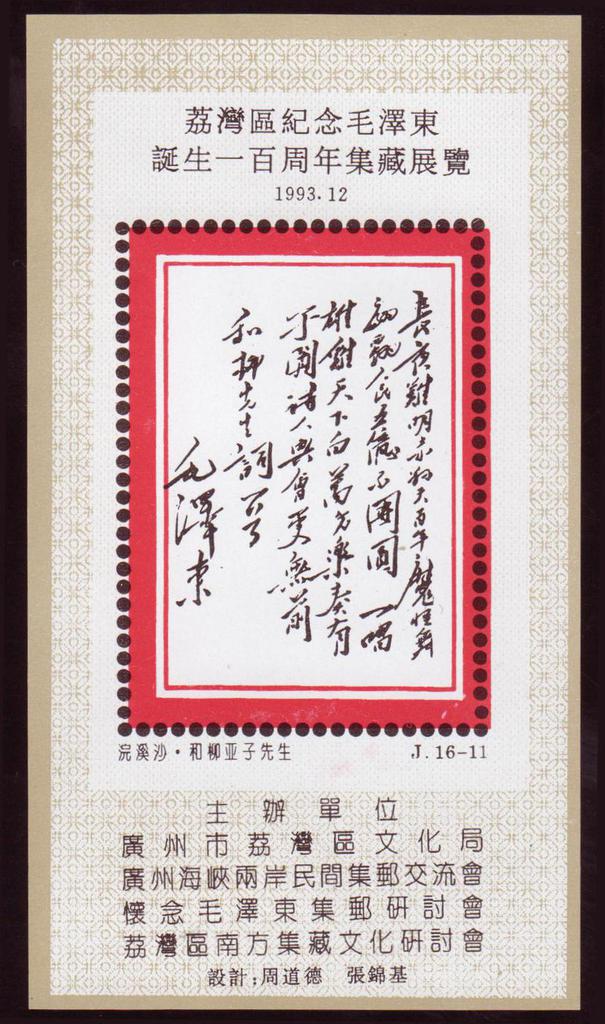 荔灣區紀念毛澤東
誕生一百周年集藏展覽
1993.12
長夜難明赤縣天百年魔怪舞
翩躚人民五億不團圓 一唱
雄雞天下白萬方樂奏有
于闐詩人興會更無前
和柳先生詞
毛澤東
浣溪沙·和柳亚子先生
J.16-11
主辦單位
廣州市荔灣區文化局
廣州海峽兩岸民間集郵交流會
懷念毛澤東集郵研討會
荔灣區南方集藏文化研討會
設計:周道德 張錦基